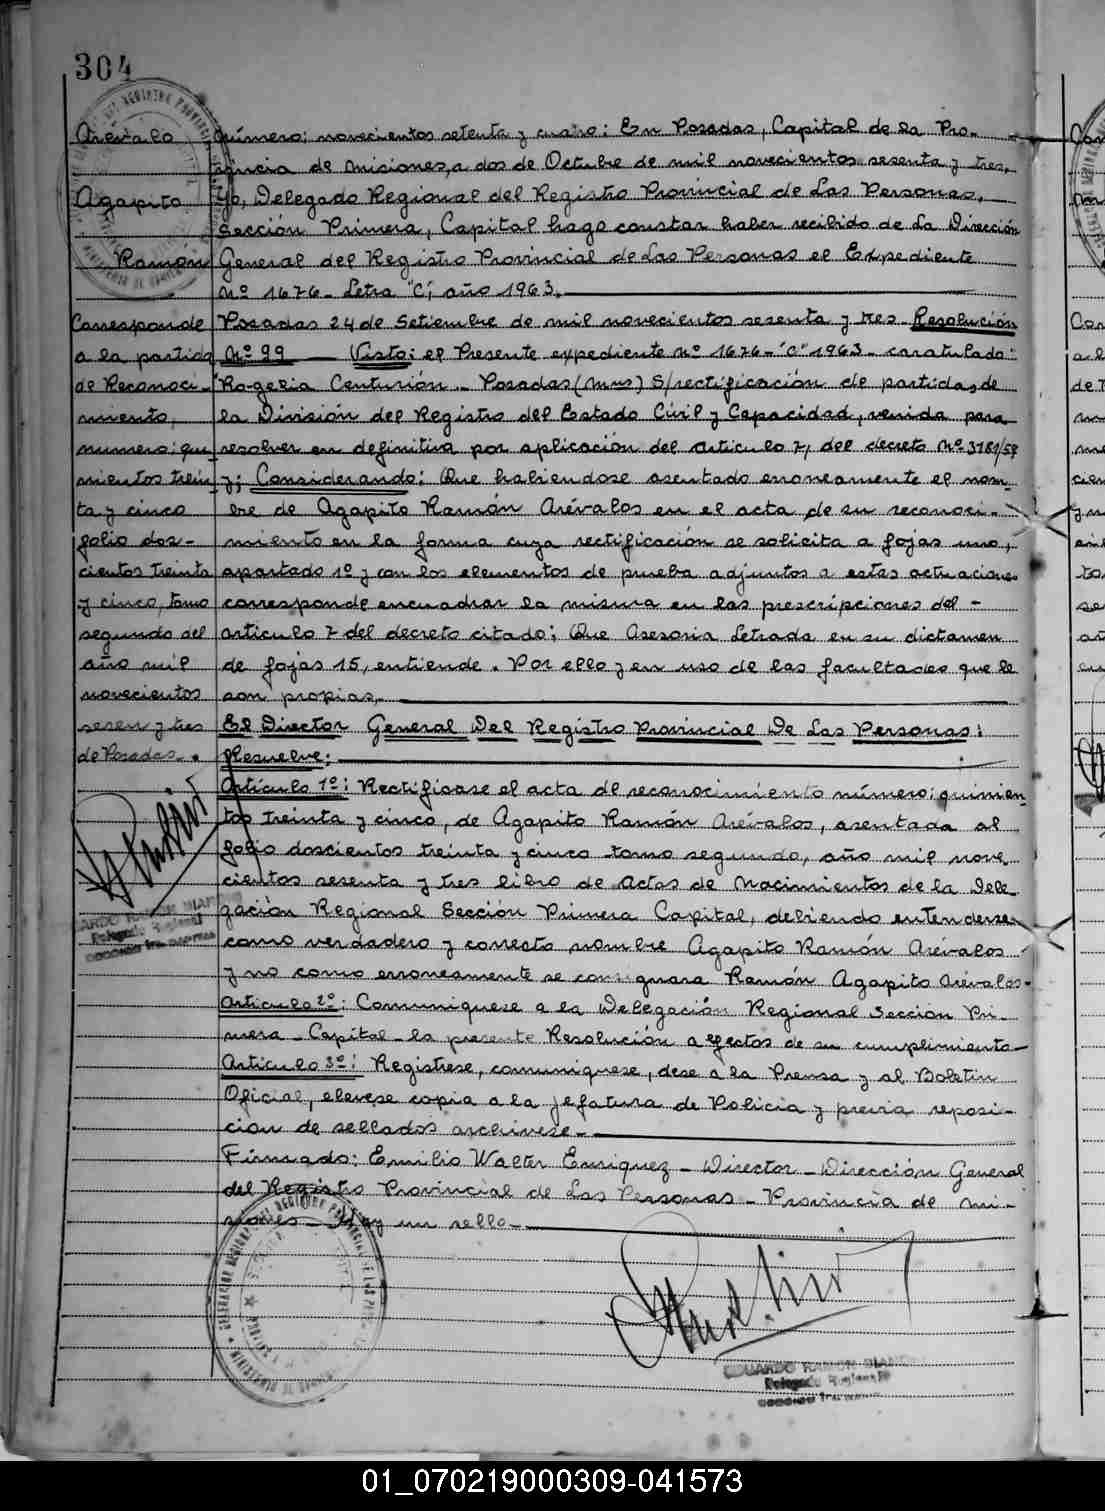 304
Arévalo
Agapito
Ramón
Corresponde
a la partida
de Reconoci-
miento,
numero: qui
nientos trein
ta y cinco
folio dos-
cientos treinta
y cinco, tomo
segundo del
año mil
novecientos
sesen y tres
de Posadas.
Número: novecientos setenta y cuatro: En Posadas, Capital de la Pro-
vincia de Misiones, a dos de Octubre de mil novecientos sesenta y tres,
Yo, Delegado Regional del Registro Provincial de Las Personas,
Sección Primera, Capital hago constar haber recibido de La Dirección
General del Registro Provincial de Las Personas el Expediente
Nº 1676- Letra "C", año 1963.
Posadas 24 de Setiembre de mil novecientos sesenta y tres Resolución
Nº 99 Visto: el Presente expediente nº 1676-"C" 1963- caratulado:
Rogelia Centurión.- Posadas (Mnes) S/rectificación de partida, de
la División del Registro del Estado Civil y Capacidad, venida para
resolver en definitiva por aplicación del articulo 7, del decreto Nº 3181/59
y; Considerando: Que habiendose asentado erroneamente el nom-
bre de Agapito Ramón Arévalos en el acta de su reconoci-
miento en la forma cuya rectificación se solicita a fojas uno,
apartado 1º y con los elementos de prueba adjuntos a estas actuaciones
corresponde encuadrar la misma en las prescripciones del -
articulo 7 del decreto citado; Que Asesoria Letrada en su dictamen
de fojas 15, entiende. Por ello y en uso de las facultades que le
son propias,
El Director General Del Registro Provincial De Las Personas:
Resuelve:
Artículo 1º: Rectificase el acta de reconocimiento número: quinien-
tos treinta y cinco, de Agapito Ramón Arévalos, asentada al
folio doscientos treinta y cinco tomo segundo, año mil nove
cientos sesenta y tres libro de Actas de Nacimientos de la Dele
gación Regional Sección Primera Capital, debiendo entenderse
como verdadero y correcto nombre Agapito Ramón Arévalos
y no como erroneamente se consignara Ramón Agapito Arévalos-
Articulo 2º: Comuniquese a la Delegación Regional Sección Pri-
mera- Capital- la presente Resolución a efectos de su cumplimiento-
Articulo 3º: Registrese, comuniquese, dese a la Prensa y al Boletin
Oficial, elevese copia a la jefatura de Policia y previa reposi-
cion de sellados archivese-
Firmado: Emilio Walter Enriquez- Director- Dirección General
del Registro Provincial de Las Personas- Provincia de Mi-
siones- Hay un sello-
EDUARDO RAMON
Delegado Regional
01_070219000309-041573